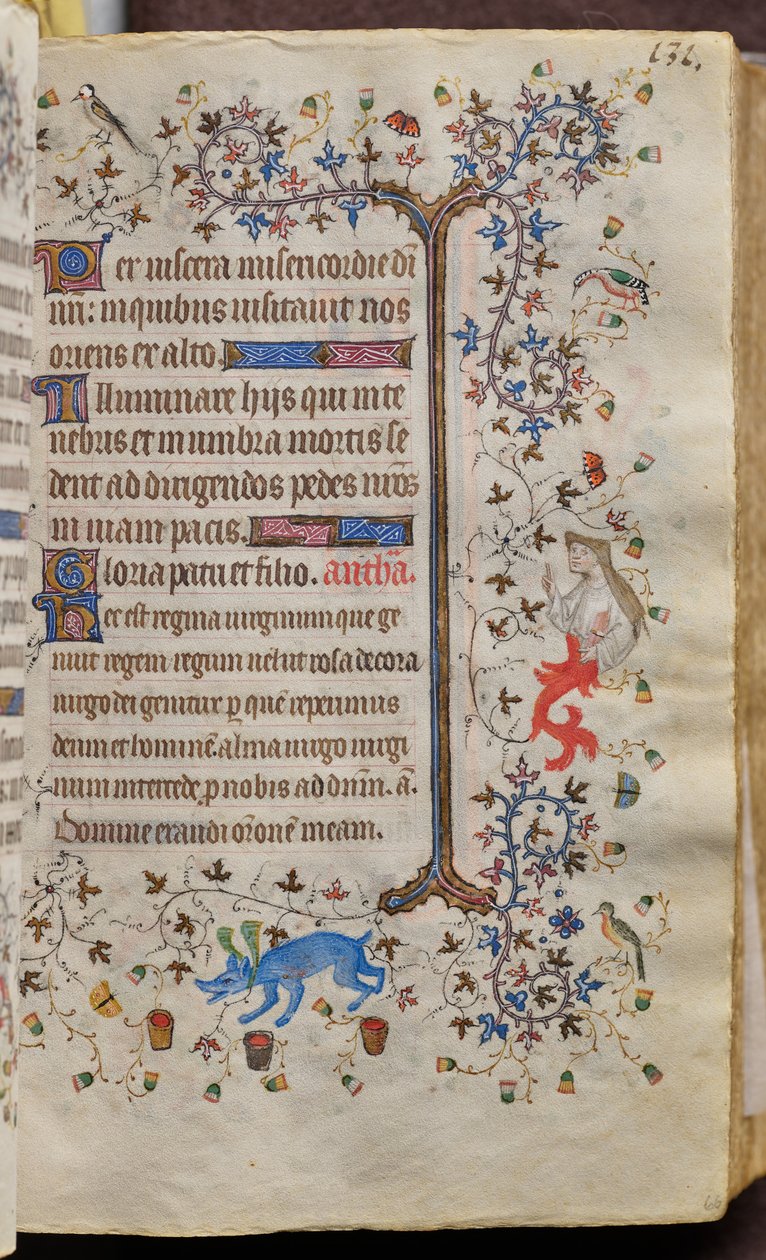 131.
Per uiscera misericordie dī
nr̄i: inquibus uisitauit nos
oriens ex alto.
Illuminare hijs qui in te
nebris et in umbra mortis se
dent ad dirigendos pedes nr̄os
in uiam pacis.
Gloria patri et filio. antħa.
Hec est regina uirginum que ge
nuit regem regum uelut rosa decora
uirgo dei genitrix ꝑ quē reperimus
deum et hominē. alma uirgo uirgi
num intercede ꝓ nobis ad dn̄m. a.̄
Domine exaudi or̄onē meam.
66